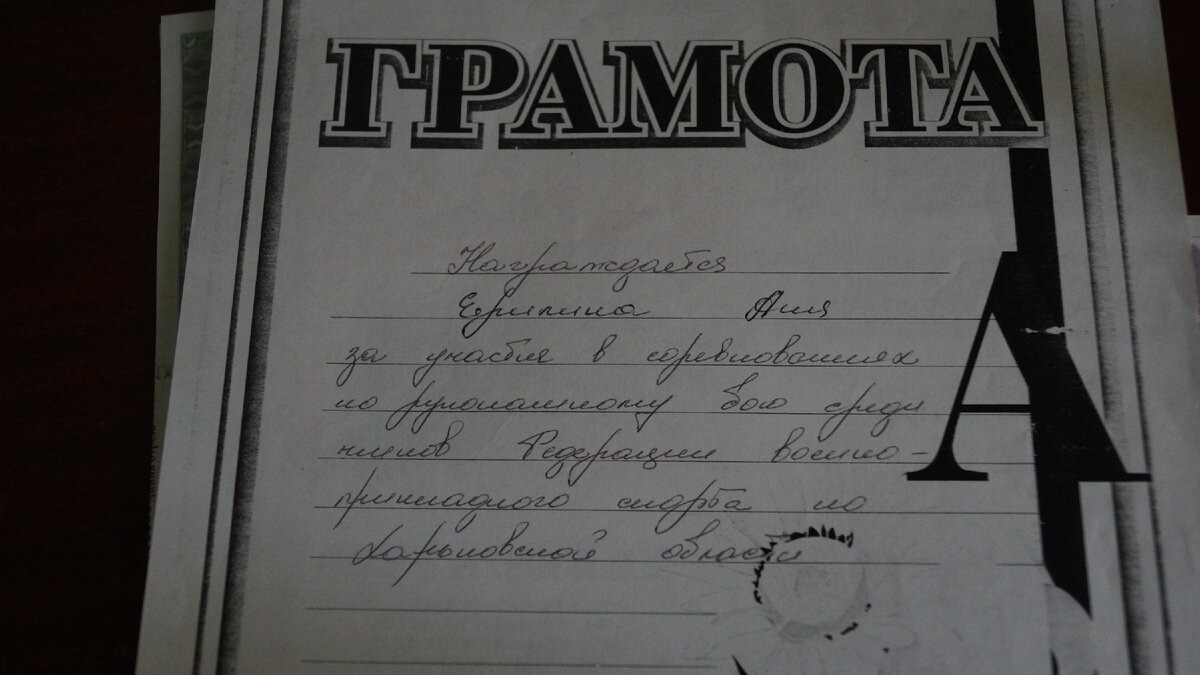 ГРАМОТА
Награждается
Аня
за участия в соревнованиях
по рукопашному бою среди
членов Федерации военно-
прикладного спорта по
Харьковской области
А